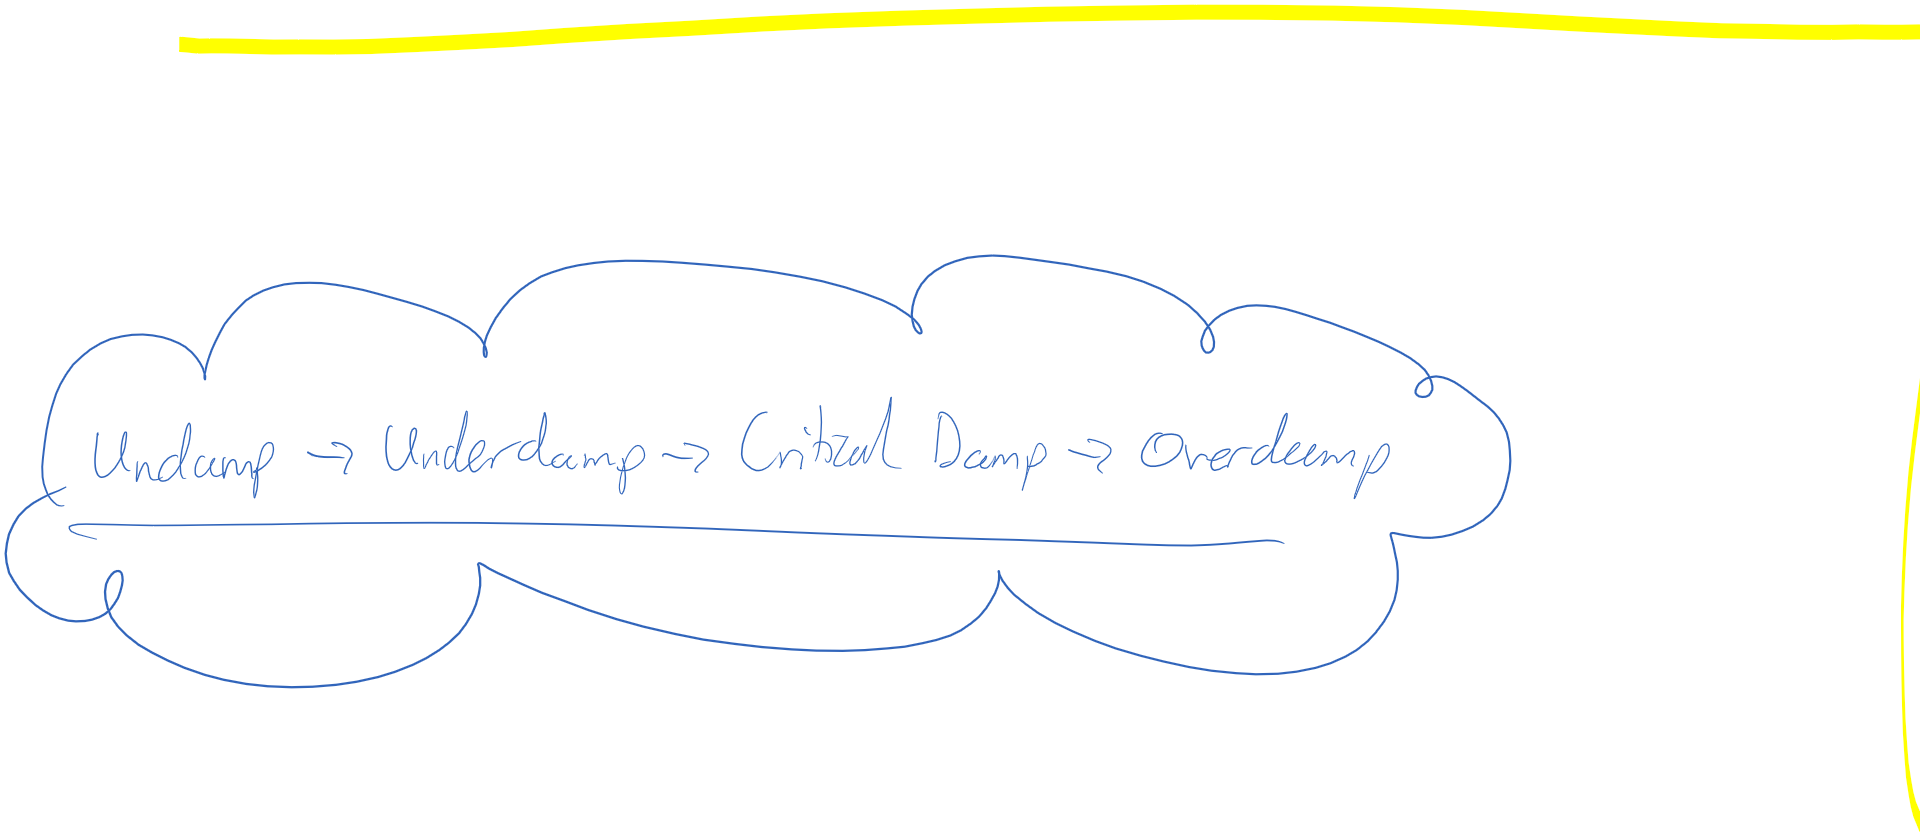 Undamp → Underdamp → Critical Damp → Overdamp